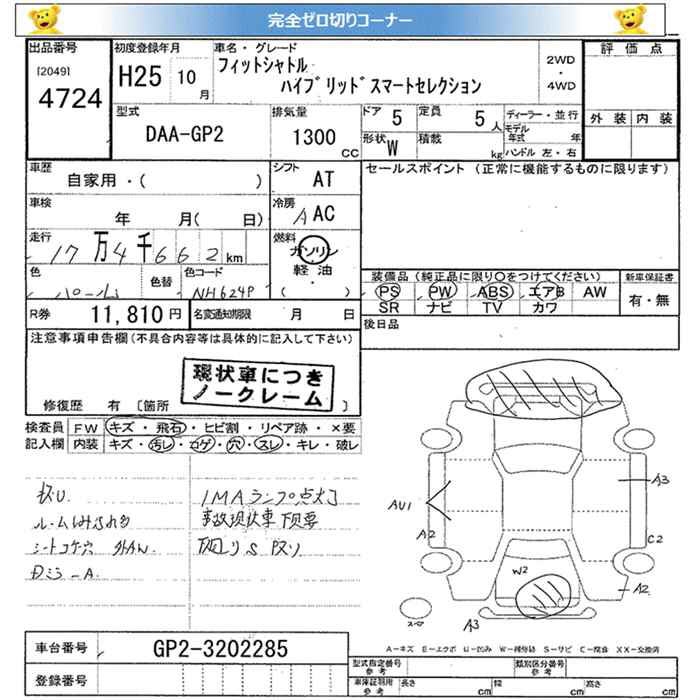 完全ゼロ切りコーナー
出品番号
[2049]
4724
初度登録年月
H25 10月
車名・グレード
フィットシャトル
ハイブリッドスマートセレクション
2WD
・
4WD
評価点
外装 内装
型式
DAA-GP2
排気量
1300
CC
ドア 5
定員 5人
形状 W
積載 kg
ディーラー・並行
モデル年式 年
ハンドル 左・右
車歴
自家用・( )
シフト AT
冷房 A AC
車検
年 月( 日)
走行
17万4千662km
燃料
ガソリン
軽油
( ・ )
色
パール
色替
色コード
NH624P
R券 11,810円
名変通知期限 月 日
セールスポイント (正常に機能するものに限ります)
装備品(純正品に限り○をつけてください)
PS PW ABS エアB AW
SR ナビ TV カワ
新車保証書
有・無
後日品
注意事項申告欄(不具合内容等は具体的に記入して下さい)
現状車につき
ノークレーム
修復歴 有 [箇所 ]
検査員
記入欄
FW キズ・飛石・ヒビ割・リペア跡・×要
内装 キズ・汚レ・コゲ・穴・スレ・キレ・破レ
IMAランプ点灯
事故現状車 下見要
下回りS
シートコゲ穴
AU1
A2
A3
C2
A2
W2
A3
A―キズ E―エクボ U―凹み W―補修跡 S―サビ C―腐食 XX―交換済
車台番号 GP2-3202285
登録番号
型式指定番号
参考
類別区分番号
参考
車庫証明用
参考
長さ cm
幅 cm
高さ cm